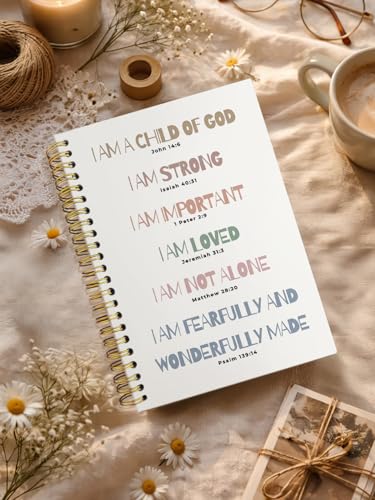 I AM A CHILD OF GOD
John 14:6
I AM STRONG
Isaiah 40:31
I AM IMPORTANT
1 Peter 2:9
I AM LOVED
Jeremiah 31:3
I AM NOT ALONE
Matthew 28:20
I AM FEARFULLY AND
WONDERFULLY MADE
Psalm 139:14